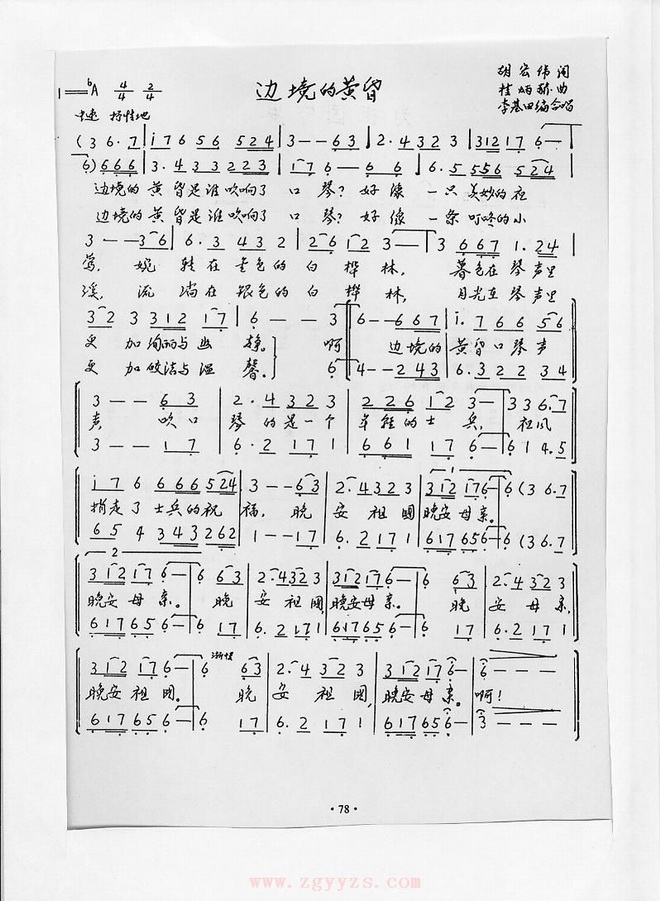 边境的黄昏
1=♭A 4/4 2/4
胡宏伟词
桂炳 曲
李基田编合唱
中速 抒情地
(3 6·7 | i 7 6 5 6 5 2 4 | 3 — — 6 3 | 2·4 3 2 3 | 3 1 2 1 7 6 —
6) 6 6 6 | 3·4 3 3 2 2 3 | 1 7 6 — 6 6 | 6·5 5 5 6 5 2 4
边境的黄昏是谁吹响了口琴?好像一只美妙的夜
边境的黄昏是谁吹响了口琴?好像一条叮咚的小
3 — — 3 6 | 6·3 4 3 2 | 2 6 1 2 3 — | 3 6 6 7 1·2 4
莺,婉转在 色的白桦林,暮色在琴声里
溪,流淌在银色的白桦林,月光在琴声里
3 2 2 3 3 1 2 1 7 | 6 — — 3 | 6 — — 6 6 7 | i·7 6 6 5 6
更加绚丽与幽静。 啊 边境的黄昏口琴声
更加皎洁与温馨。 6 4 — — 2 4 3 | 6·3 2 2 3 4
3 — — 6 3 | 2·4 3 2 3 | 2 2 6 1 2 3 — | 3 3 6·7
声 吹口琴的是一个年轻的士兵,祖风
3 — — 1 7 | 6·2 1 7 1 | 6 6 1 1 7 6 — | 6 1 4·5
i 7 6 6 6 6 5 2 4 | 3 — — 6 3 | 2·4 3 2 3 | 3 1 2 1 7 6 — | 6 (3 6·7
捎走了士兵的祝福,晚安祖国晚安母亲。
6 5 4 3 4 3 2 6 2 | 1 — — 1 7 | 6·2 1 7 1 | 6 1 7 6 5 6 — | 6 (3 6·7
3 1 2 1 7 6 — | 6 6 3 | 2·4 3 2 3 | 3 1 2 1 7 6 — | 6 6 3 | 2·4 3 2 3
晚安母亲。晚安祖国,晚安母亲。晚安母亲,
6 1 7 6 5 6 — | 6 1 7 | 6·2 1 7 1 | 6 1 7 6 5 6 — | 6 1 7 | 6·2 1 7 1
渐慢
3 1 2 1 7 6 — | 6 6 3 | 2·4 3 2 3 | 3 1 2 1 7 6 — | 6 — — —
晚安祖国。晚安祖国,晚安母亲。啊!
6 1 7 6 5 6 — | 6 1 7 | 6·2 1 7 1 | 6 1 7 6 5 6 — | 3 — — —
·78·
www.zgyyzs.com